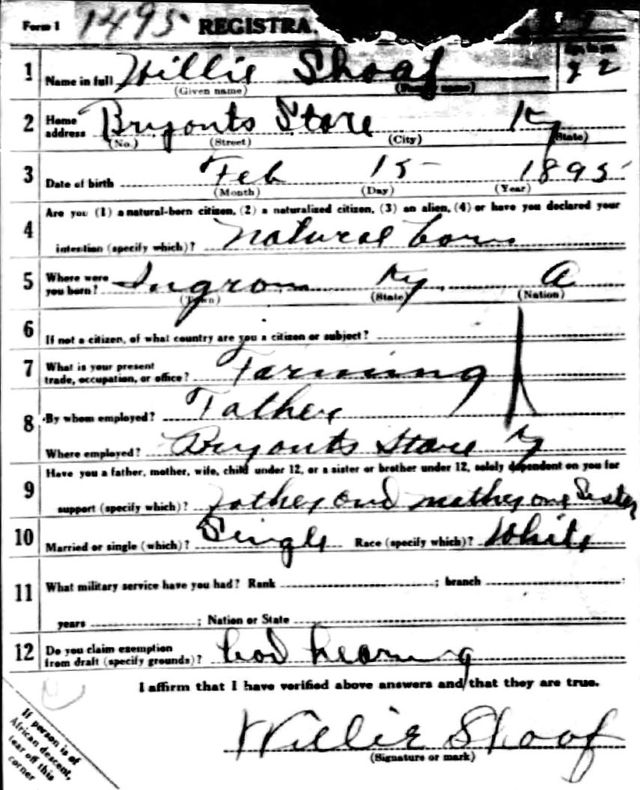 Form 1 1495 REGISTRA
1 Name in full Willie Shoaf 22
(Given name) (Family name) Age, in yrs.
2 Home address Bryonts Store Ky
(No.) (Street) (City) (State)
3 Date of birth Feb 15 1895
(Month) (Day) (Year)
4 Are you (1) a natural-born citizen, (2) a naturalized citizen, (3) an alien, (4) or have you declared your
intention (specify which)? natural born
5 Where were you born? Ingrom Ky A
(Town) (State) (Nation)
6 If not a citizen, of what country are you a citizen or subject?
7 What is your present trade, occupation, or office? Farming
8 By whom employed? Father
Where employed? Bryonts Store Ky
9 Have you a father, mother, wife, child under 12, or a sister or brother under 12, solely dependent on you for
support (specify which)? Father and mother one Sister
10 Married or single (which)? Single Race (specify which)? White
11 What military service have you had? Rank ; branch
years ; Nation or State
12 Do you claim exemption from draft (specify grounds)? bad hearing
I affirm that I have verified above answers and that they are true.
Willie Shoof
(Signature or mark)
If person is of
African descent,
tear off this
corner